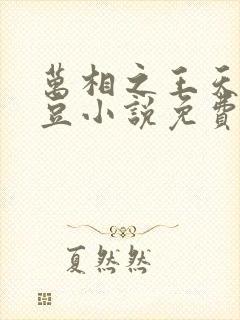 萬相之王天
豆小說免費
夏然然